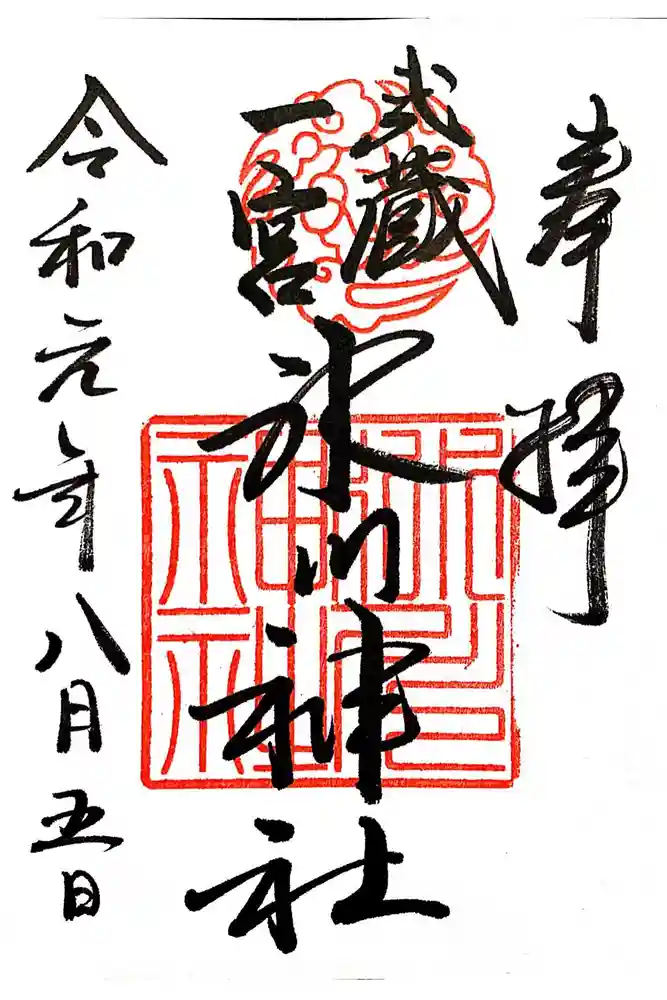 奉拝
武蔵
一宮
氷川神社
令和元年八月五日